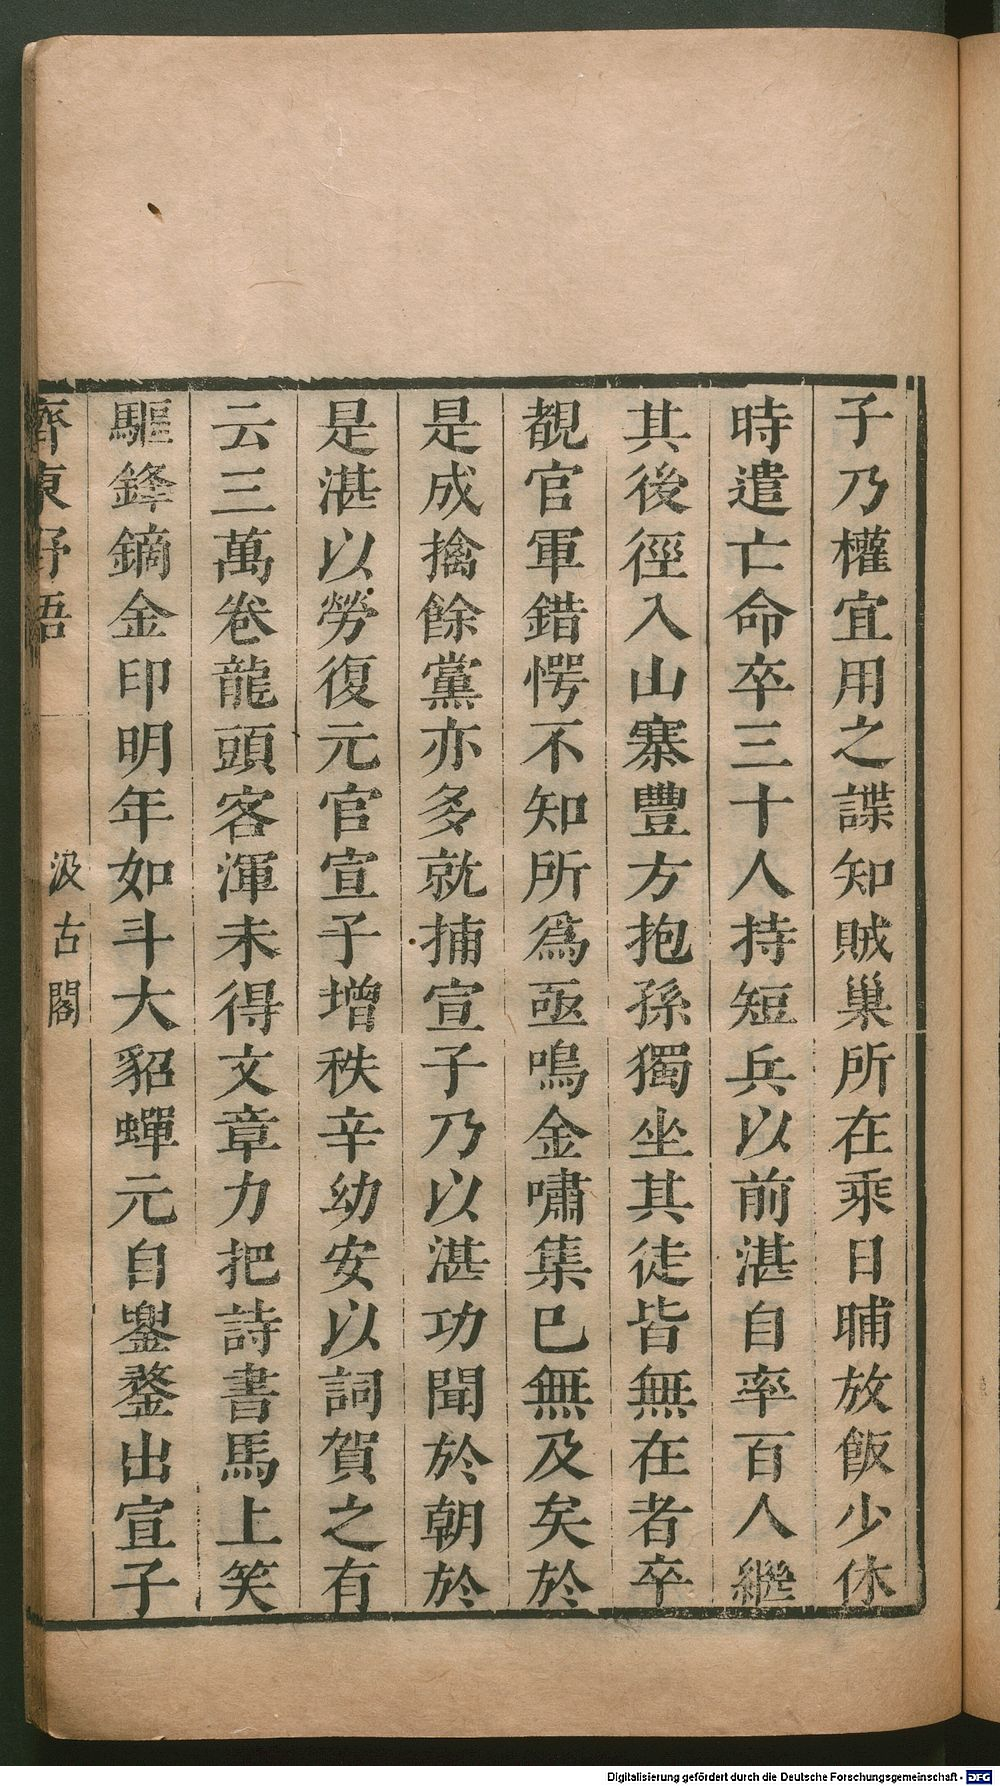 子乃權宜用之諜知賊巢所在乘日晡放飯少休
時遣亡命卒三十人持短兵以前湛自率百人繼
其後徑入山寨豐方抱孫獨坐其徒皆無在者卒
覩官軍錯愕不知所爲亟鳴金嘯集已無及矣於
是成擒餘黨亦多就捕宣子乃以湛功聞於朝於
是湛以勞復元官宣子增秩辛幼安以詞賀之有
云三萬卷龍頭客渾未得文章力把詩書馬上笑
驅鋒鏑金印明年如斗大貂蟬元自兜鍪出宣子
齊東野語
汲古閣
Digitalisierung gefördert durch die Deutsche Forschungsgemeinschaft - DFG